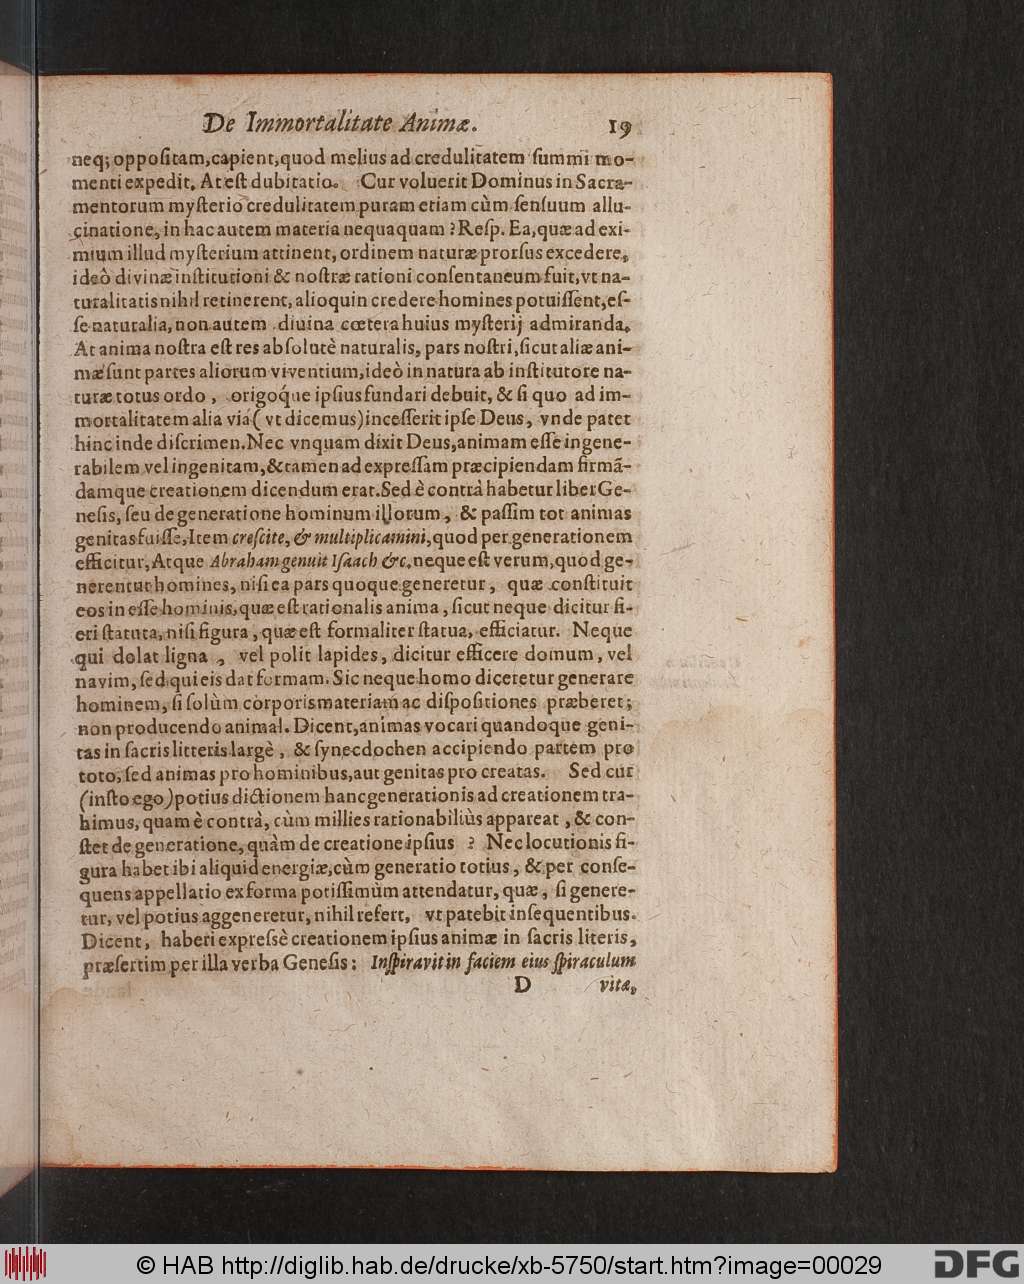 De Immortalitate Animæ. 19
neq; oppoſitam, capient, quod melius ad credulitatem ſummi mo-
menti expedit, At eſt dubitatio. Cur voluerit Dominus in Sacra-
mentorum myſterio credulitatem puram etiam cùm ſenſuum allu-
cinatione, in hac autem materia nequaquam? Reſp. Ea, quæ ad exi-
mium illud myſterium attinent, ordinem naturæ prorſus excedere,
ideò divinæ inſtitutioni & noſtræ rationi conſentaneum fuit, vt na-
turalitatis nihil retinerent, alioquin credere homines potuiſſent, eſ-
ſe naturalia, non autem diuina cœtera huius myſterij admiranda,
At anima noſtra eſt res abſolutè naturalis, pars noſtri, ſicut aliæ ani-
mæ ſunt partes aliorum viventium, ideò in natura ab inſtitutore na-
turæ totus ordo, origoq́ue ipſius fundari debuit, & ſi quo ad im-
mortalitatem alia viá (vt dicemus) inceſſerit ipſe Deus, vnde patet
hinc inde diſcrimen. Nec vnquam dixit Deus, animam eſſe ingene-
rabilem vel ingenitam, & tamen ad expreſſam præcipiendam firmã-
damque creationem dicendum erat. Sed è contrà habetur liber Ge-
neſis, ſeu de generatione hominum illorum, & paſſim tot animas
genitas fuiſſe, Item creſcite, & multiplicamini, quod per generationem
efficitur, Atque Abraham genuit Iſaach &c, neque eſt verum, quod ge-
nerentur homines, niſi ea pars quoque generetur, quæ conſtituit
eos in eſſe hominis, quæ eſt rationalis anima, ſicut neque dicitur fi-
eri ſtatuta, niſi figura, quæ eſt formaliter ſtatua, efficiatur. Neque
qui dolat ligna, vel polit lapides, dicitur efficere domum, vel
navim, ſed qui eis dat formam. Sic neque homo diceretur generare
hominem, ſi ſolùm corporis materiam ac diſpoſitiones præberet;
non producendo animal. Dicent, animas vocari quandoque geni-
tas in ſacris litteris largè, & ſynecdochen accipiendo partem pro
toto, ſed animas pro hominibus, aut genitas pro creatas. Sed cur
(inſto ego) potius dictionem hanc generationis ad creationem tra-
himus, quam è contrà, cùm millies rationabiliùs appareat, & con-
ſtet de generatione, quàm de creatione ipſius? Nec locutionis fi-
gura habet ibi aliquid energiæ, cùm generatio totius, & per conſe-
quens appellatio ex forma potiſſimùm attendatur, quæ, ſi genere-
tur, vel potius aggeneretur, nihil refert, vt patebit inſequentibus.
Dicent, haberi expreſsè creationem ipſius animæ in ſacris literis,
præſertim per illa verba Geneſis; Inſpiravit in faciem eius ſpiraculum
D vitæ,
© HAB http://diglib.hab.de/drucke/xb-5750/start.htm?image=00029
DFG